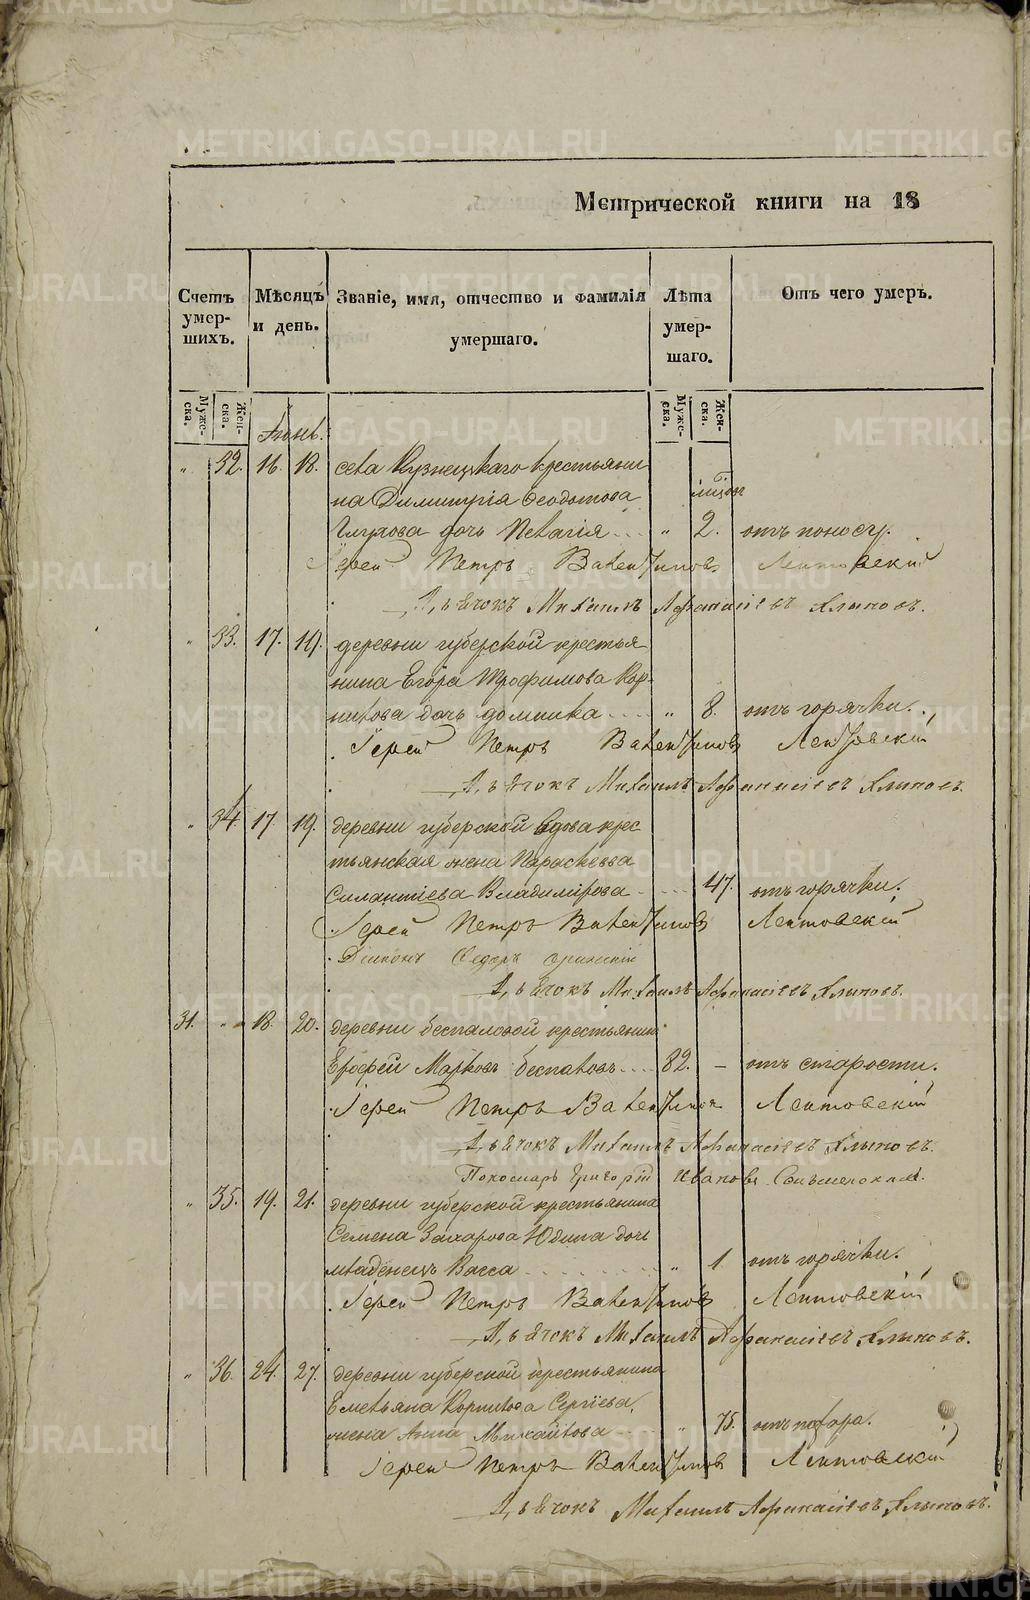 METRIKI.GASO-URAL.RU
Метрической книги на 18
Счетъ умер-шихъ.
Мѣсяцъ и день.
Званіе, имя, отчество и фамилія умершаго.
Лѣта умер-шаго.
Отъ чего умеръ.
Муже-ска. Жен-ска. Муже-ска. Жен-ска.
Іюнь.
" 32. 16. 18. села Кузнецкаго крестьяни
на Димитрія Ѳеодотова
Глухова дочь Пелагія " 2. отъ поносу.
Іерей Петръ Валентиновъ Лентовскій
Дьячокъ Михаилъ Афанасіевъ Хлыновъ.
" 33. 17. 19. деревни губерской крестья
нина Егора Трофимова Кор-
нилова дочь домника " 8. отъ горячки.
Іерей Петръ Валентиновъ Лентовскій
Дьячокъ Михаилъ Афанасіевъ Хлыновъ.
" 34. 17. 19. деревни губерской вдова крес
тьянская жена Параскевва
Силантіева Владимірова 47. отъ горячки.
Іерей Петръ Валентиновъ Лентовскій
Діаконъ Ѳедоръ
Дьячокъ Михаилъ Афанасіевъ Хлыновъ.
31. " 18. 20. деревни беспаловой крестьянинъ
Ерофей Марковъ беспаловъ 82. – отъ старости.
Іерей Петръ Валентиновъ Лентовскій
Дьячокъ Михаилъ Афанасіевъ Хлыновъ.
Пономарь Григорій Ивановъ
" 35. 19. 21. деревни губерской крестьянина
Семена Захарова Юдина дочь
младенецъ Васса " 1 отъ горячки.
Іерей Петръ Валентиновъ Лентовскій
Дьячокъ Михаилъ Афанасіевъ Хлыновъ.
" 36. 24. 27. деревни губерской крестьянина
Емельяна Корнилова Сергіева
жена Анна Михайлова " 75. отъ
Іерей Петръ Валентиновъ Лентовскій
Дьячокъ Михаилъ Афанасіевъ Хлыновъ.